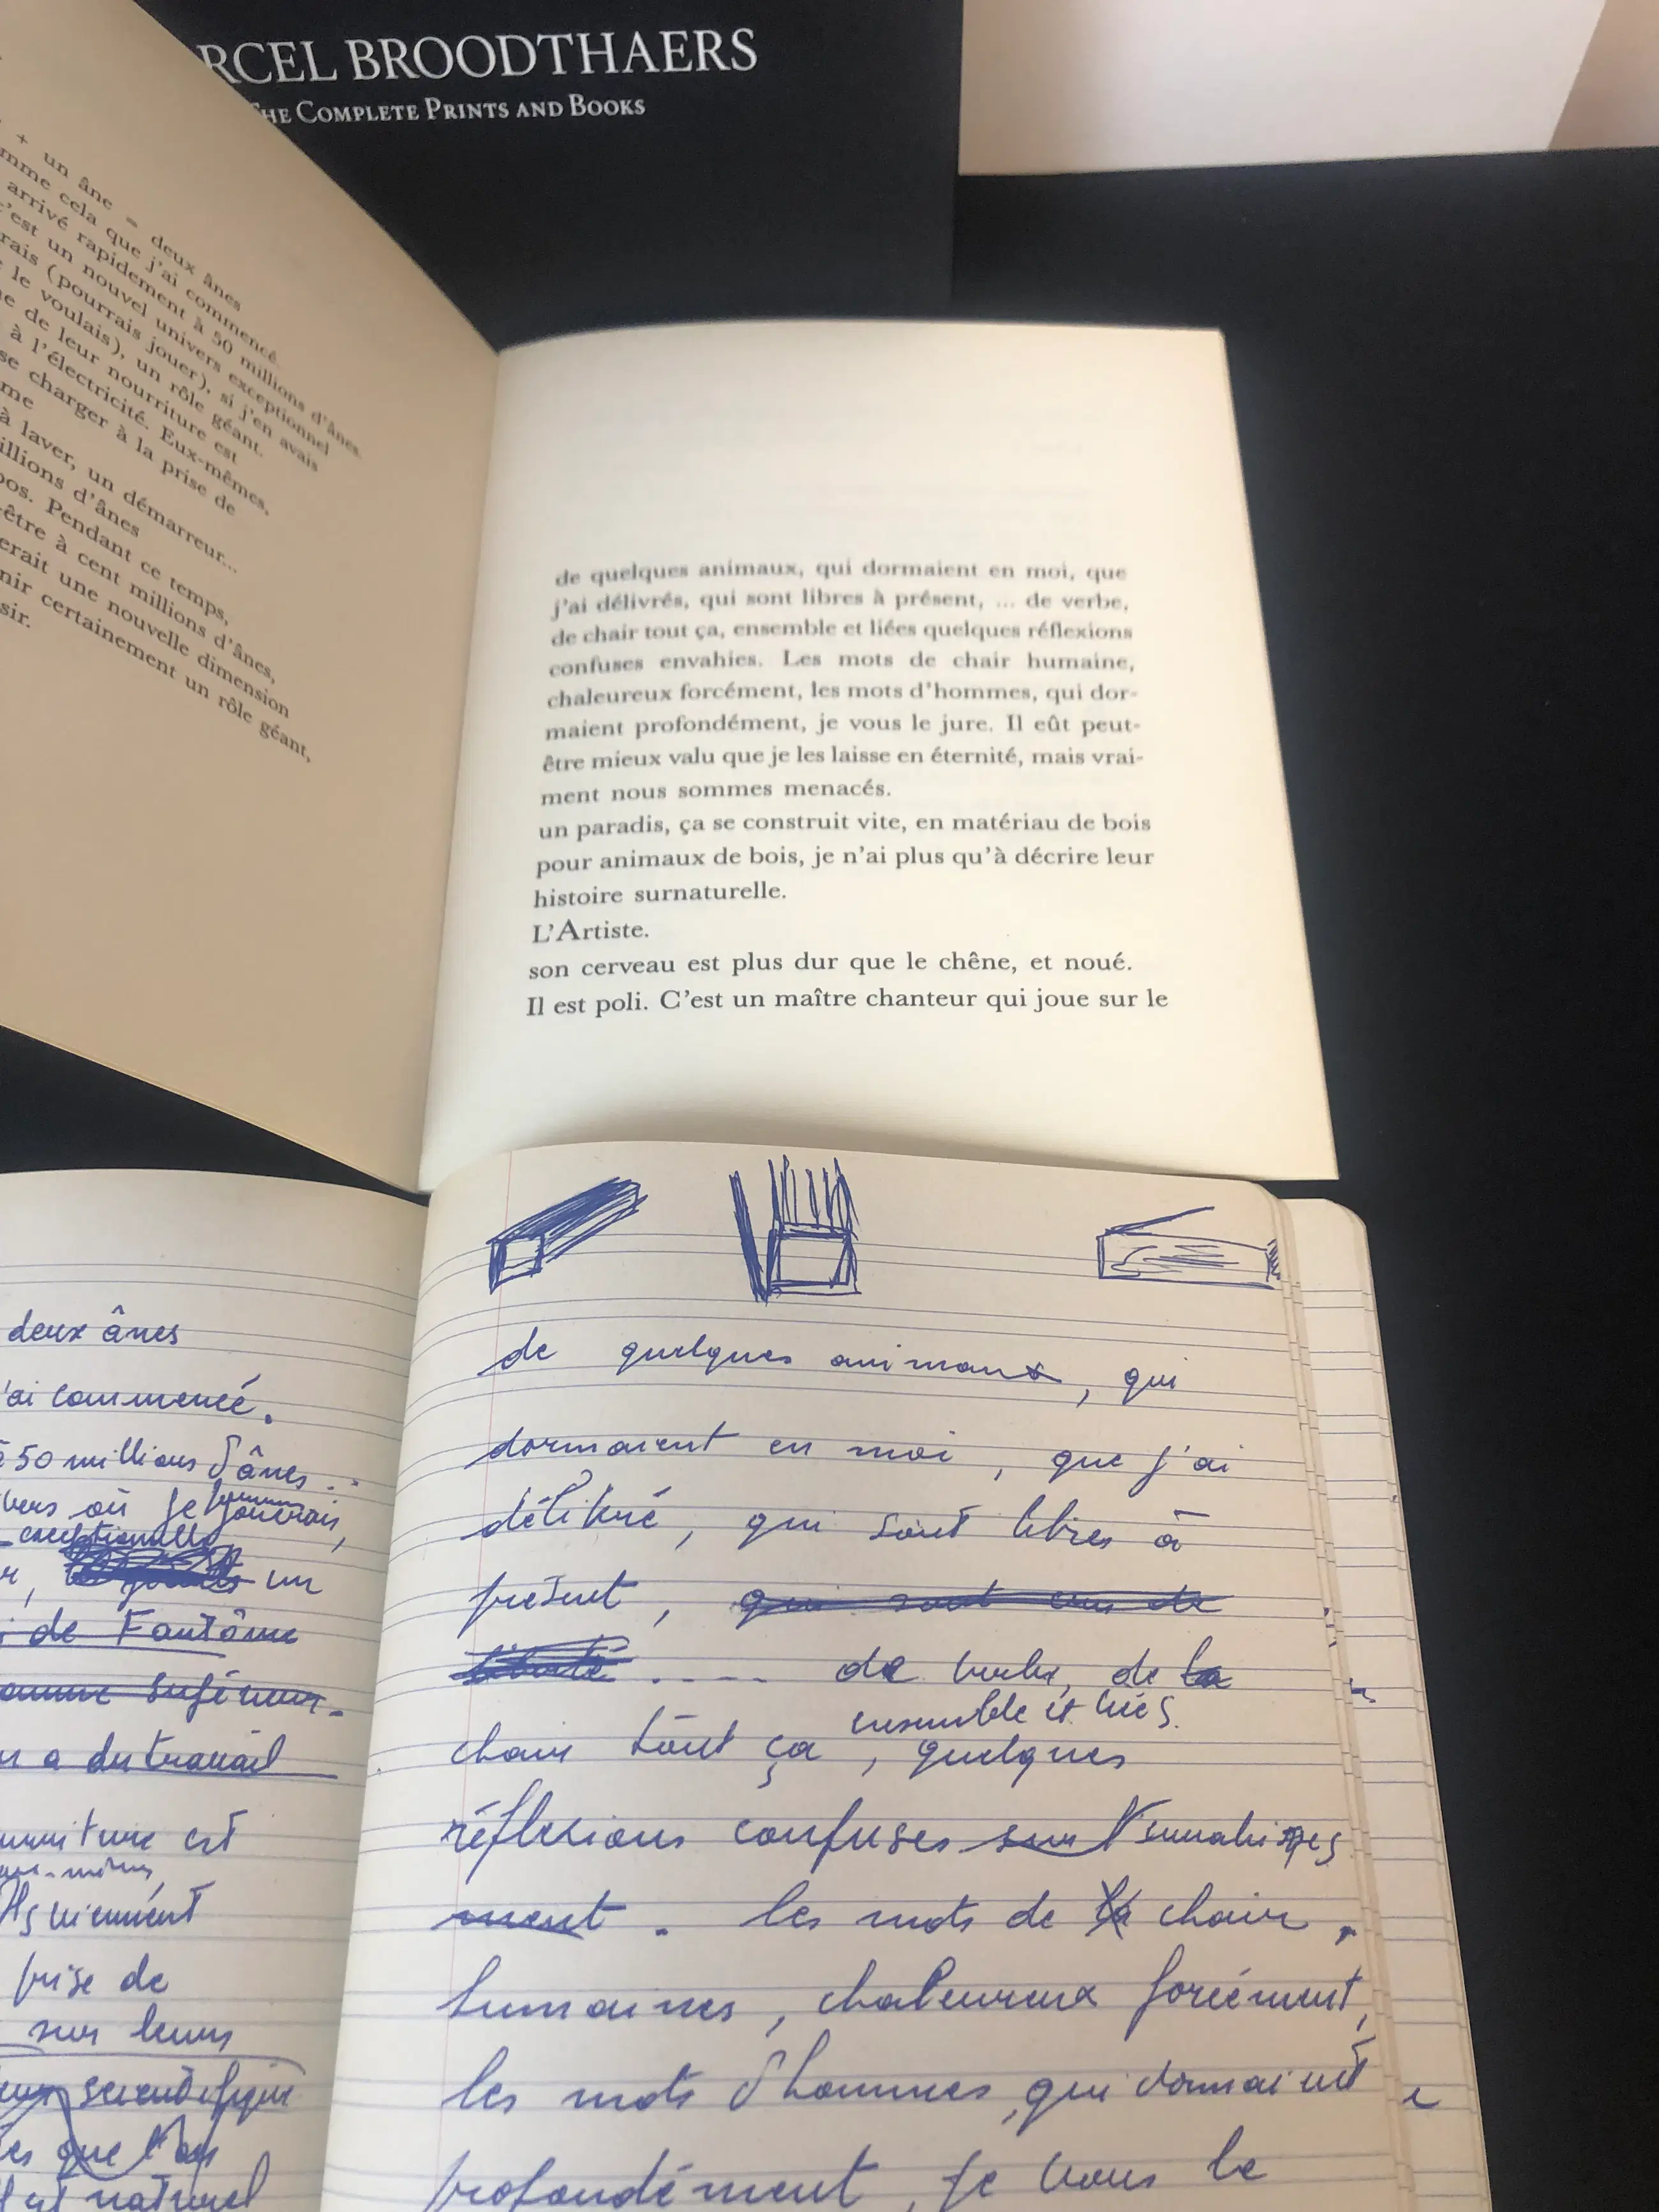 RCEL BROODTHAERS
THE COMPLETE PRINTS AND BOOKS
+ un âne = deux ânes
mme cela que j'ai commencé
arrivé rapidement à 50 millions d'ânes.
c'est un nouvel univers exceptionnel
rais (pourrais jouer), si j'en avais
le voulais), un rôle géant.
de leur nourriture est
à l'électricité. Eux-mêmes,
se charger à la prise de
me
à laver, un démarreur...
illions d'ânes
os. Pendant ce temps,
-être à cent millions d'ânes,
erait une nouvelle dimension
nir certainement un rôle géant,
sir.
de quelques animaux, qui dormaient en moi, que
j'ai délivrés, qui sont libres à présent, ... de verbe,
de chair tout ça, ensemble et liées quelques réflexions
confuses envahies. Les mots de chair humaine,
chaleureux forcément, les mots d'hommes, qui dor-
maient profondément, je vous le jure. Il eût peut-
être mieux valu que je les laisse en éternité, mais vrai-
ment nous sommes menacés.
un paradis, ça se construit vite, en matériau de bois
pour animaux de bois, je n'ai plus qu'à décrire leur
histoire surnaturelle.
L'Artiste.
son cerveau est plus dur que le chêne, et noué.
Il est poli. C'est un maître chanteur qui joue sur le
deux ânes
'ai commencé.
à 50 millions d'ânes...
vers où je jouerais,
exceptionnelle
un
de Fantôme
a du travail
est
Ils viennent
prise de
sur leurs
que l'on
naturel
de quelques animaux, qui
dormaient en moi, que j'ai
délivré, qui sont libres à
présent, qui sont ivres de
liberté .... de verbe, de la
ensemble et liés.
chair tout ça, quelques
réflexions confuses sur
ment. les mots de la chair,
humaines, chaleureux forcément,
les mots d'hommes, qui dormaient
profondément, je vous le